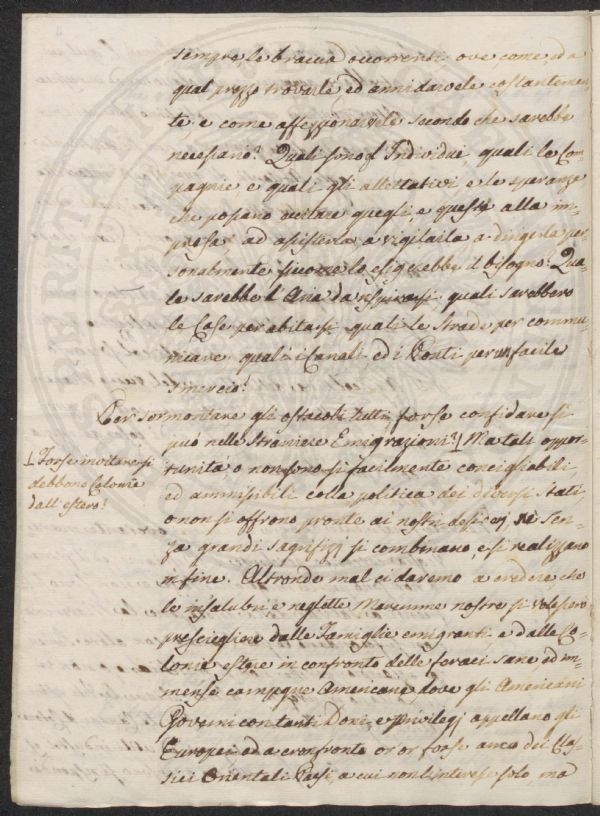 sempre le braccia occorrenti: ove come ed a
qual prezzo trovarle ed annidarvele costantemen-
te, e come affezzionarvele secondo che sarebbe
necessario? Quali sono gl' Individui, quali le Com-
pagnie e quali gli allettativi e le speranze
che possano eccitare quegli, e queste alla im-
presa, ad assisterla, a vigilarla a dirigerla per-
sonalmente siccome lo esigerebbe il bisogno? Qua-
le sarebbe l'Aria da respirarsi quali sarebbero
le Case per abitarsi quali le Strade per commu-
nicare quali i Canali, ed i Ponti per un facile
smercio?
Per sormontare gli ostacoli tutti forse confidare si
può nelle straniere Emigrazioni? Ma tali oppor-
tunità o non sono sì facilmente conciliabili,
ed ammissibili colla politica dei diversi Stati,
o non si offrono pronte ai nostri desiderj sen-
za grandi sagrifizj si combinano, e si realizzano
infine. Altronde mal ci daremo a credere che
le insalubri e neglette Maremme nostre si volessero
prescegliere dalle Famiglie emigranti e dalle Co-
lonie estere in confronto delle feraci sane ed im-
mense campagne Americane, dove gli Americani
Governi con tanti Doni, e privilegj appellano gli
Europei ed a confronto or or forse anco dei Clas-
sici Orientali Paesi, a cui non l'interesse solo, ma
Forse invitare si
debbono Colonie
dall'estero?